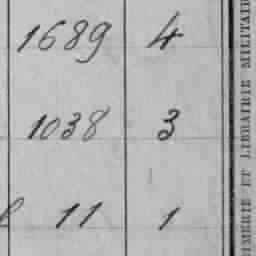 1689 4
1038 3
11 1
IMERIE ET LIBRAIRIE MILITAIR